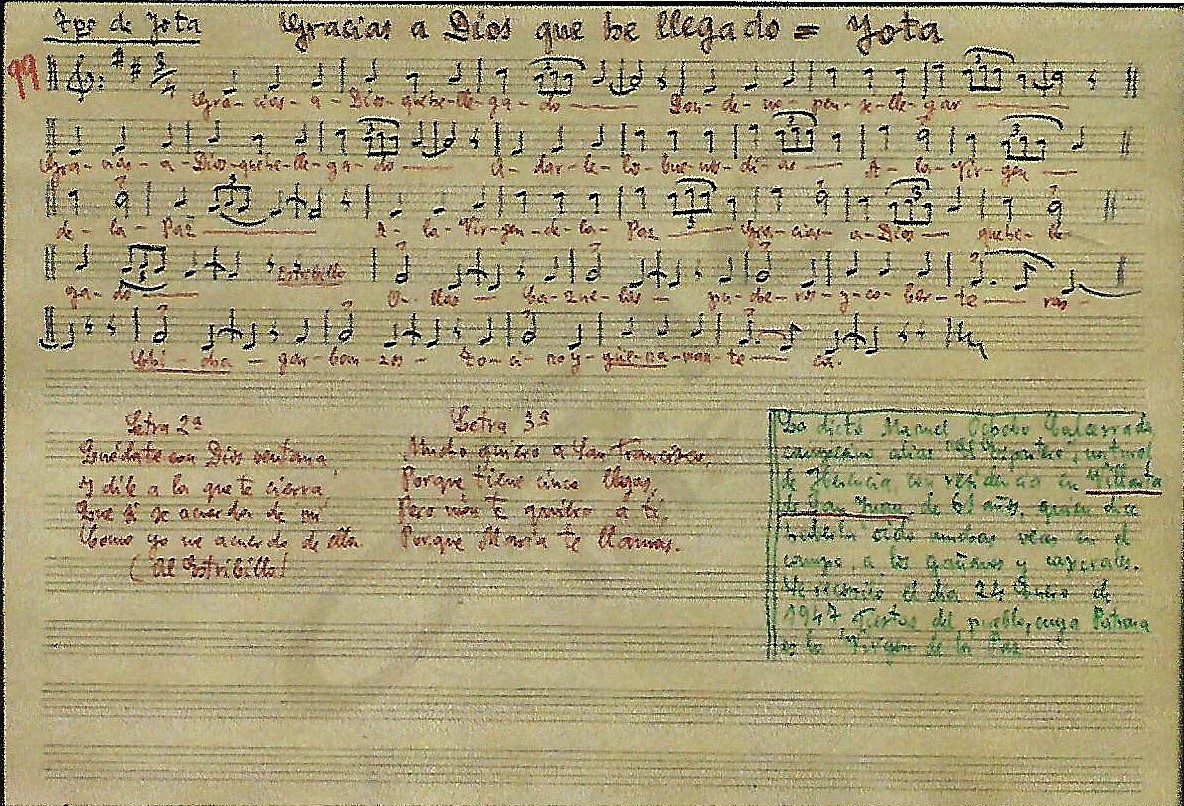 Tpo de Jota
Gracias a Dios que he llegado = Jota
99
Gra-cias-a-Dios-quehe-lle-ga-do Don-de-no-pen-se-lle-gar
Gra-cias-a-Dios-quehe-lle-ga-do A-dar-le-lo-bue-nos-di-as A-la-Vir-gen
de-la-Paz A-la-Vir-gen-de-la-Paz Gra-cias a-Dios quehe-lle
ga-do Estribillo O-llas Ca-zue-las pu-che-ros-y-co-ber-te-ras
Chi-cha gar-ban-zos To-ci-no-y-
Letra 2ª
Quédate con Dios ventana,
y dile a la que te cierra,
Que si se acuerda de mi
Como yo me acuerdo de ella
(Al Estribillo)
Letra 3ª
Mucho quiero a San Francisco,
Porque tiene cinco llagas,
Pero más te quiero a ti,
Porque María te llamas.
La dictó Manuel
campesino alias "El natural
de Herencia, con residencia en Villarta
de San Juan, de 61 años, quien dice
haberla oido muchas veces en el
campo, a los gañanes y
Se recogió el dia 24 Enero de
1947 Fiestas del pueblo, cuya Patrona
es la Virgen de la Paz